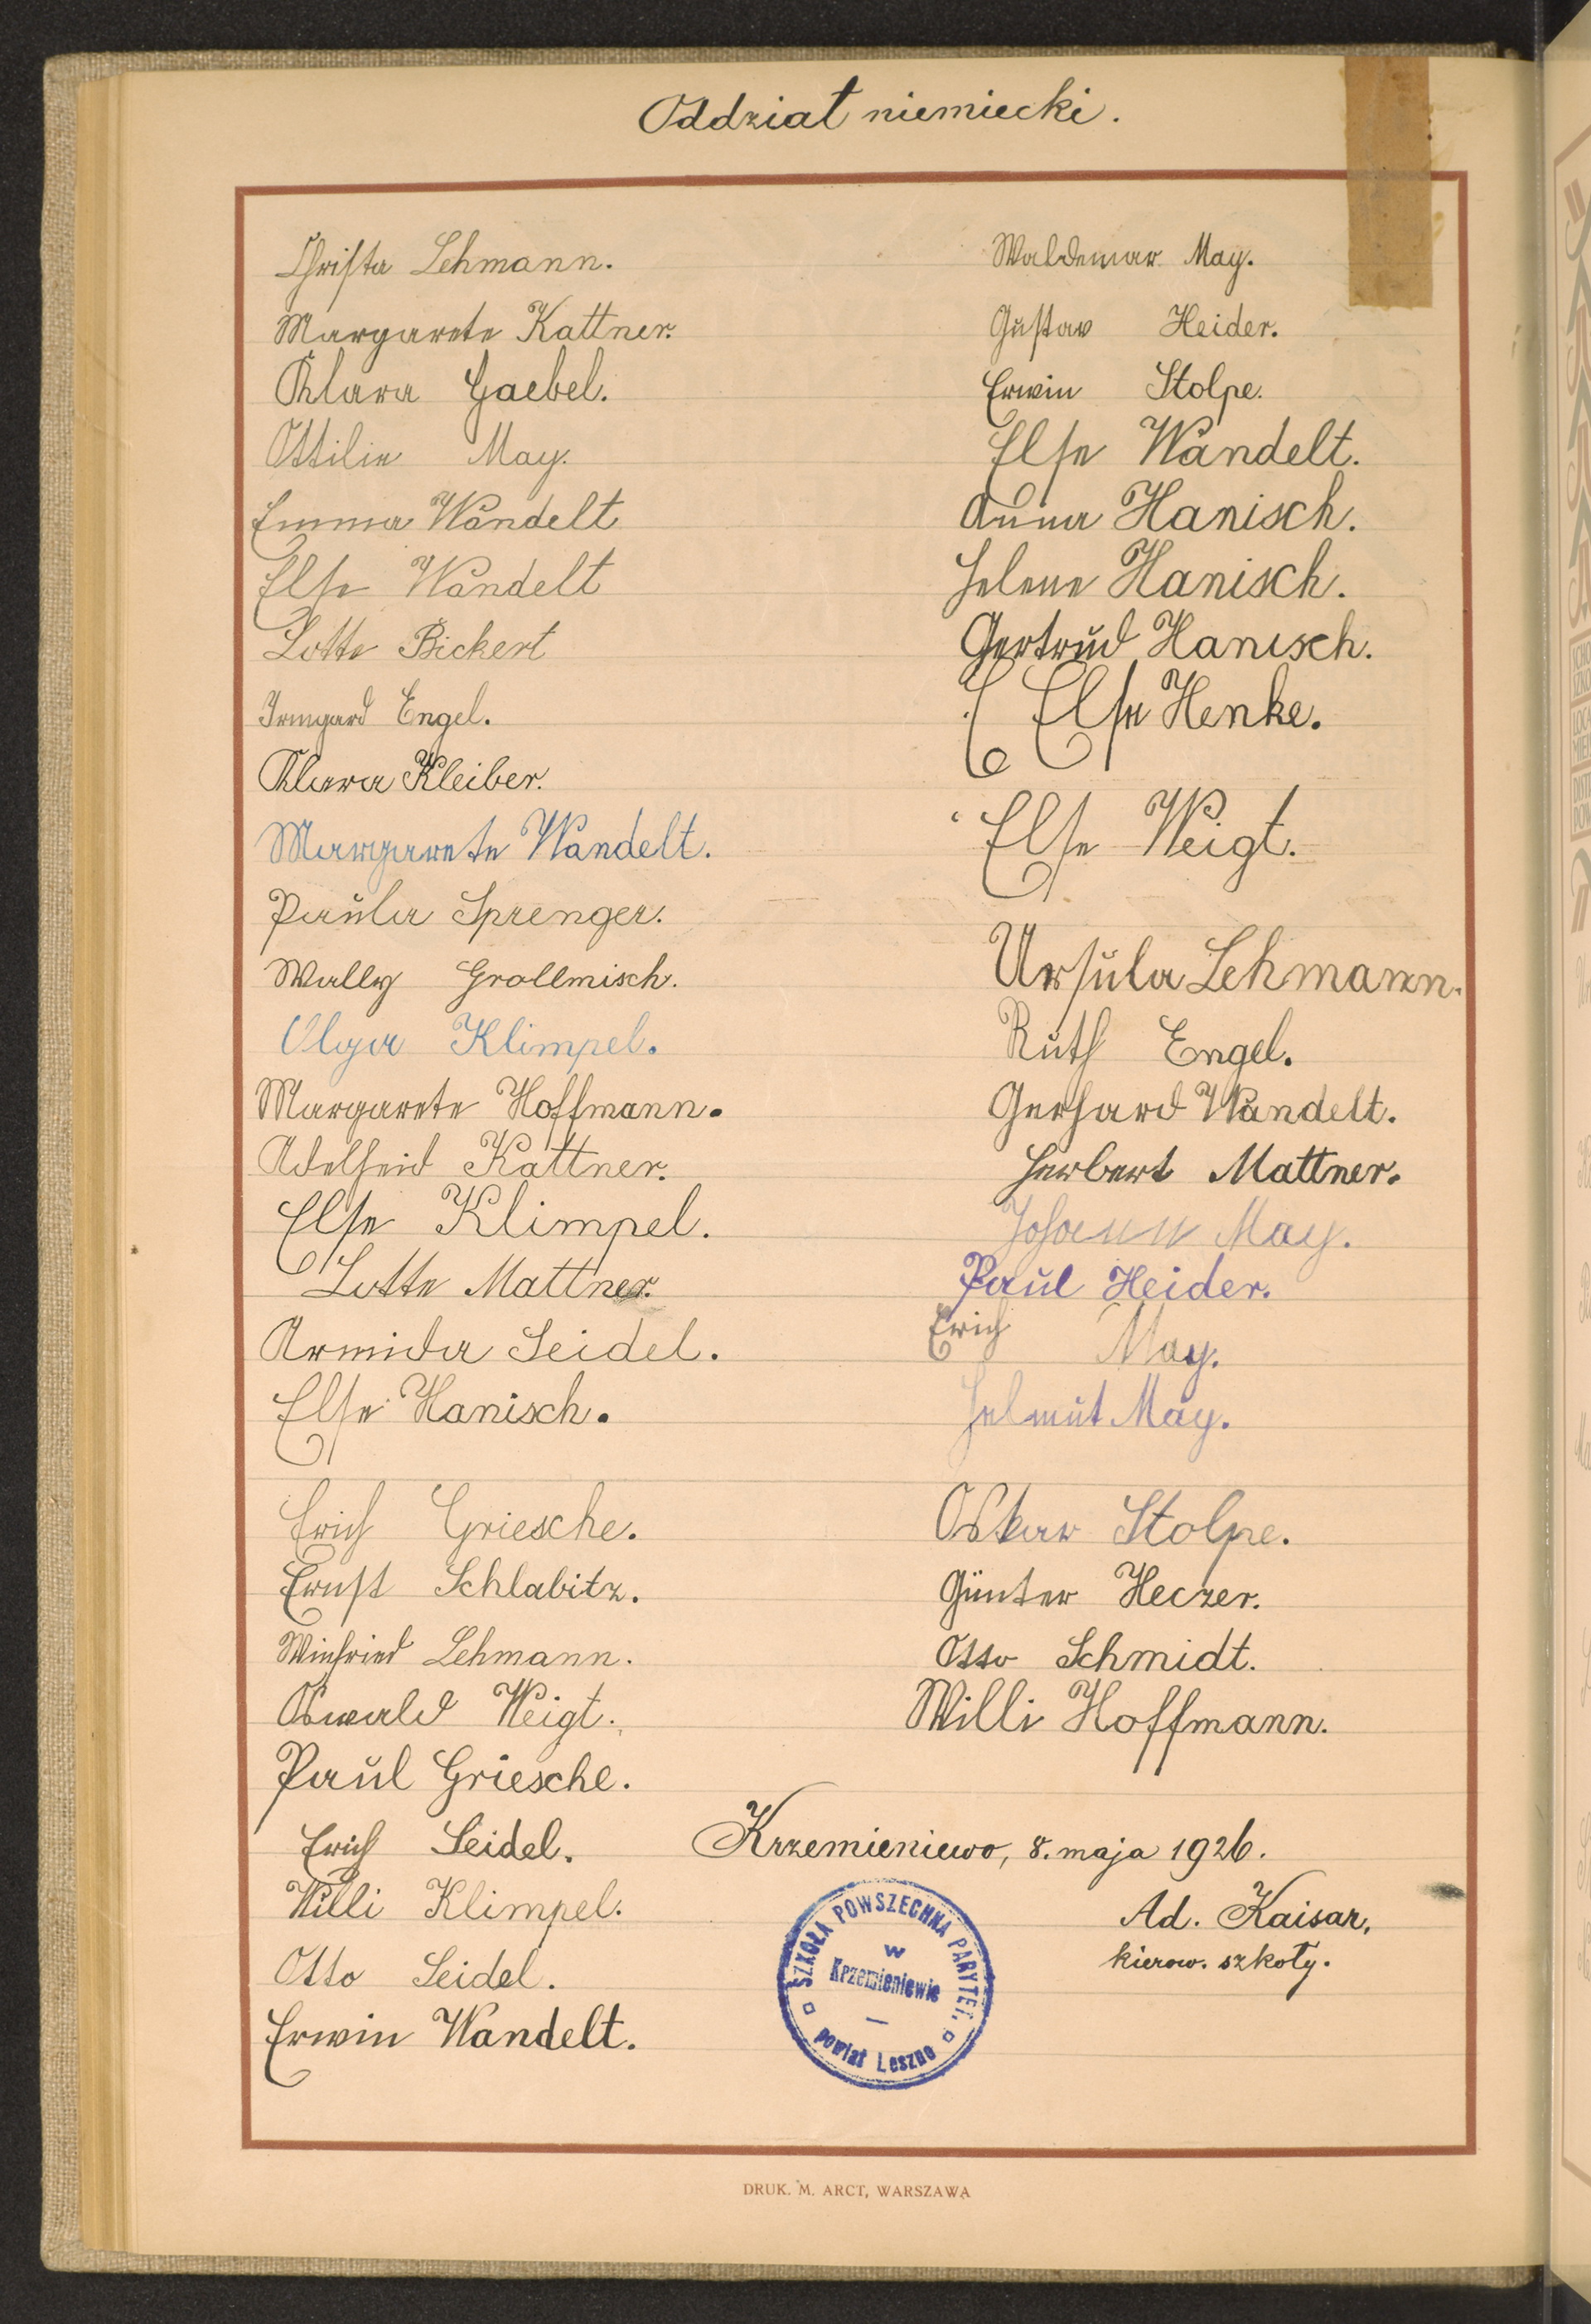 Oddział niemiecki.
Christa Lehmann.
Margarete Kattner.
Klara Gaebel.
Ottilie May.
Emma Wandelt
Else Wandelt
Lotte Bickert
Irmgard Engel.
Klara Kleiber.
Margarete Wandelt.
Paula Sprenger.
Wally Grollmisch.
Olga Klimpel.
Margarete Hoffmann.
Adelheid Kattner.
Else Klimpel.
Lotte Mattner.
Armida Seidel.
Else Hanisch.
Erich Griesche.
Ernst Schlabitz.
Winfried Lehmann.
Oswald Weigt.
Paul Griesche.
Erich Seidel.
Willi Klimpel.
Otto Seidel.
Erwin Wandelt.
Waldemar May.
Gustav Heider.
Erwin Stolpe.
Else Wandelt.
Anna Hanisch.
Helene Hanisch.
Gertrud Hanisch.
Else Henke.
Else Weigt.
Ursula Lehmann.
Ruth Engel.
Gerhard Wandelt.
Herbert Mattner.
Johann May.
Paul Heider.
Erich May.
Helmut May.
Oskar Stolpe.
Günter Heczer.
Otto Schmidt.
Willi Hoffmann.
Krzemieniewo, 8. maja 1926.
Ad. Kaisar,
kierow. szkoły.
SZKOŁA POWSZECHNA PARYTET.
w
Krzemieniewie
powiat Leszno
DRUK. M. ARCT, WARSZAWA